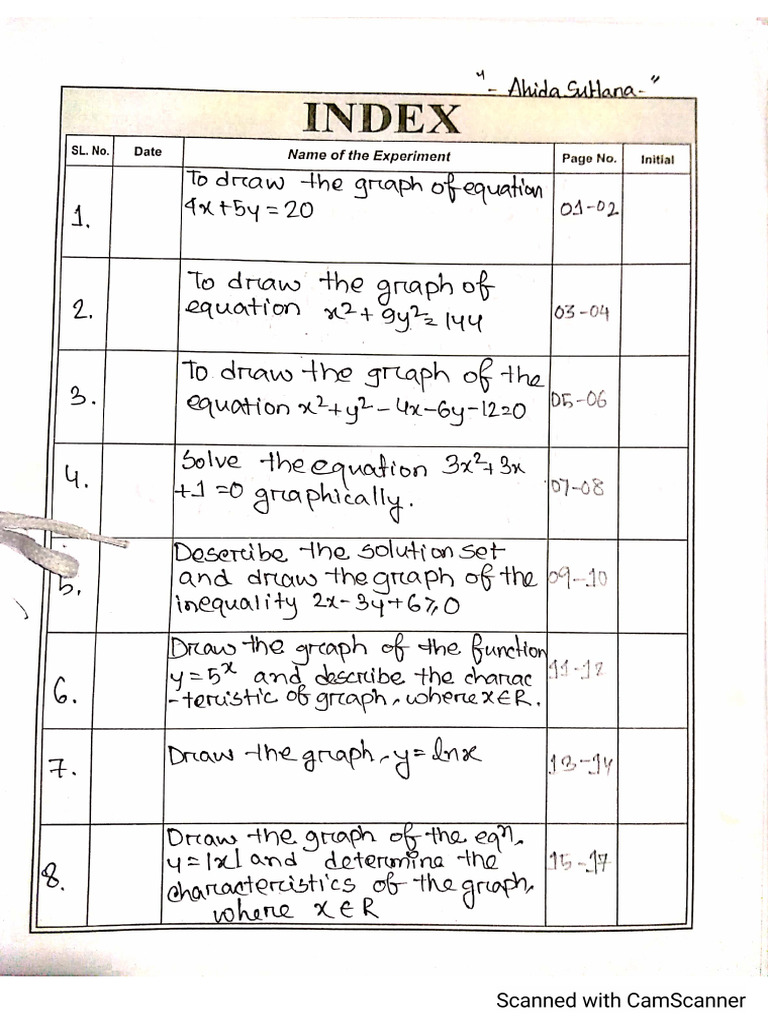 "- Ahida Sultana-"
INDEX
SL. No. Date Name of the Experiment Page No. Initial
1. To draw the graph of equation 01-02
4x+5y=20
2. To draw the graph of 03-04
equation x²+9y²=144
3. To draw the graph of the 05-06
equation x²+y²-4x-6y-12=0
4. Solve the equation 3x²+3x 07-08
+1=0 graphically.
5. Describe the solution set 09-10
and draw the graph of the
inequality 2x-3y+6≥0
6. Draw the graph of the function 11-12
y=5ˣ and describe the charac
-teristic of graph, where x∈R.
7. Draw the graph, y=lnx 13-14
8. Draw the graph of the eqⁿ, 15-17
y=|x| and determine the
characteristics of the graph,
where x∈R
Scanned with CamScanner